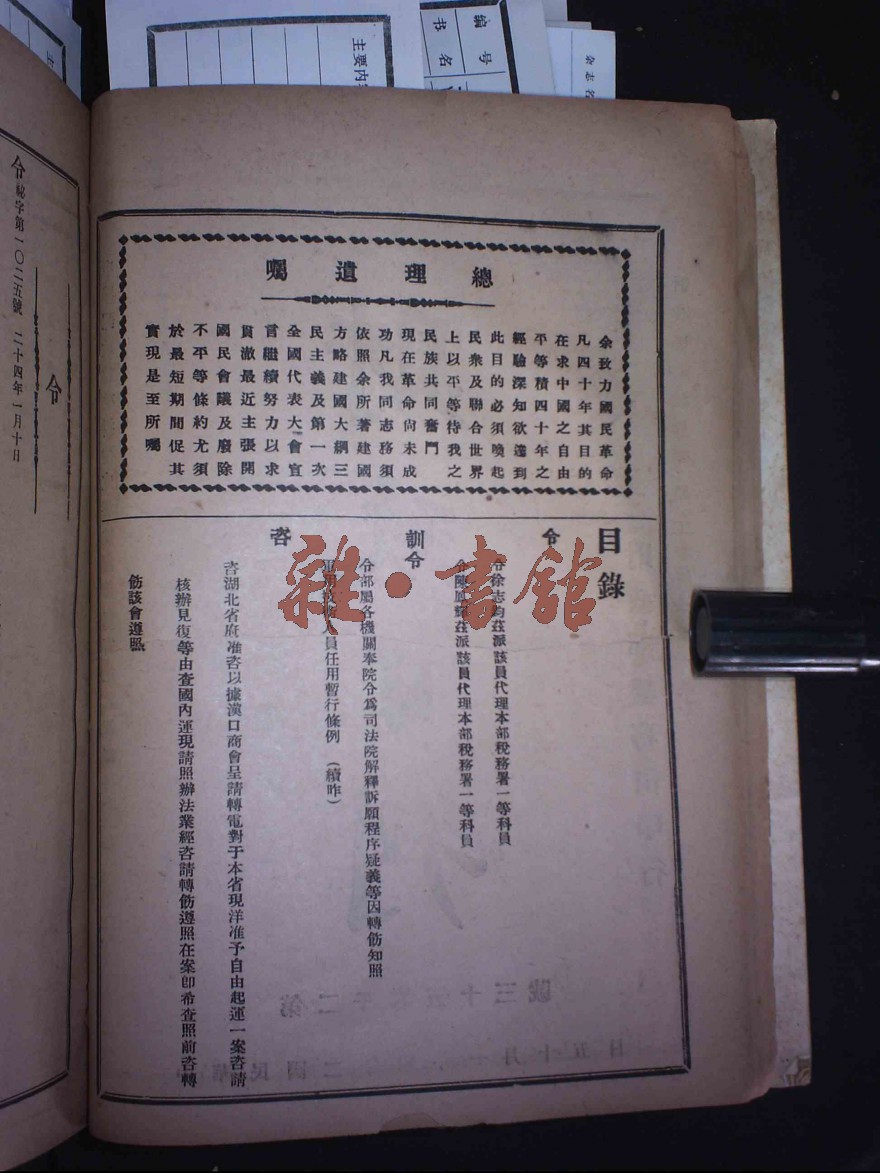 總理遺囑
余致力國民革命
凡四十年其目的
在求中國之自由
平等積四十年之
經驗深知欲達到
此目的必須喚起
民衆及聯合世界
上以平等待我之
民族共同奮鬥
現在革命尙未成
功凡我同志務須
依照余所著建國
方略建國大綱三
民主義及第一次
全國代表大會宣
言繼續努力以求
貫澈最近主張開
國民會議及廢除
不平等條約尤須
於最短期間促其
實現是至所囑
目錄
令
令徐志鈞茲派該員代理本部稅務署一等科員
茲派該員代理本部稅務署一等科員
訓令
令部屬各機關奉院令爲司法院解釋訴願程序疑義等因轉飭知照
人員任用暫行條例（續昨）
咨
咨湖北省府准咨以據漢口商會呈請轉電對于本省現洋准予自由起運一案咨請
核辦見復等由查國內運現請照辦法業經咨請轉飭遵照在案卽希查照前咨轉
飭該會遵照
令
令 祕字第一〇二五號 二十四年一月十日
雜·書館
主要内
编号
书名
杂志名